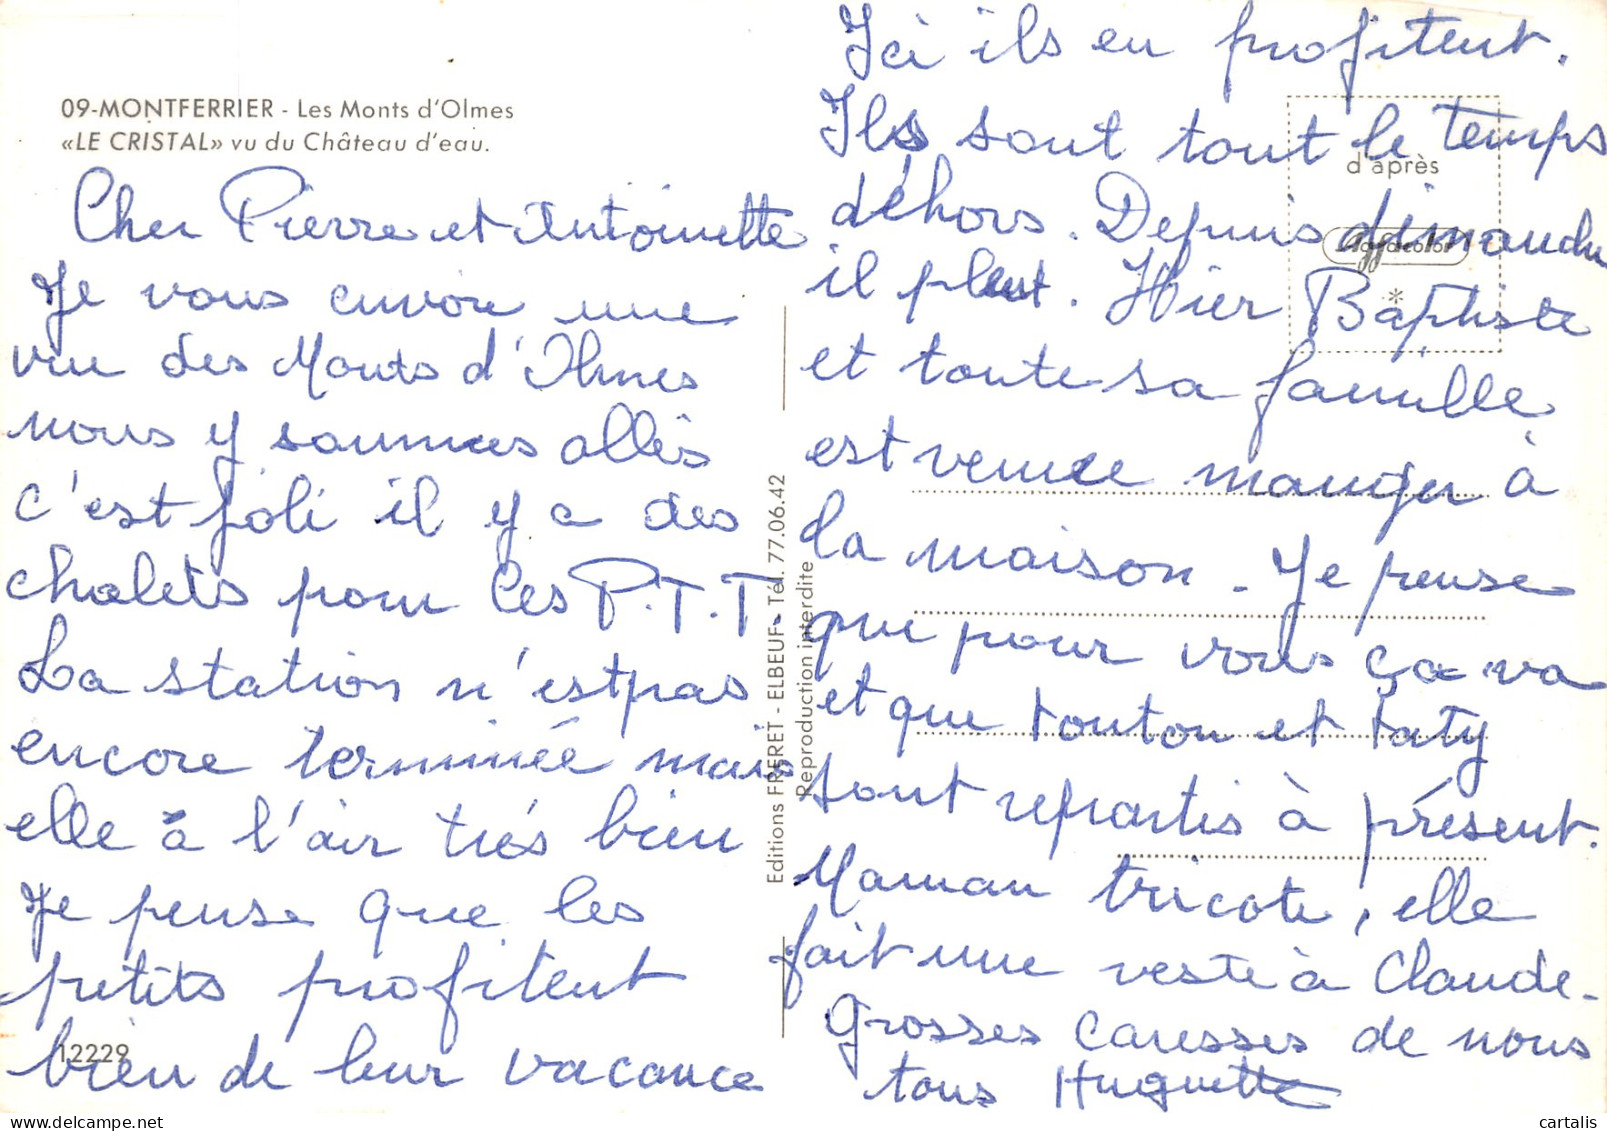 09-MONTFERRIER - Les Monts d'Olmes
«LE CRISTAL» vu du Château d'eau.
Cher Pierre et Antoinette
Je vous envoie une
vue des Monts d'Olmes
nous y sommes allés
c'est joli il y a des
chalets pour les P.T.T.
La station n'est pas
encore terminée mais
elle à l'air trés bien
Je pense que les
petits profitent
bien de leur vacance
12229
Editions FRERET - ELBEUF - Tél. 77.06.42
Reproduction interdite
d'après
Agfacolor
*
Ici ils en profitent.
Ils sont tout le temps
déhors. Depuis dimanche
il pleut. Hier Baptiste
et toute sa famille
est venue manger à
la maison. Je pense
que pour vous ça va
et que tonton et taty
sont repartis à présent.
Maman tricote, elle
fait une veste à Claude.
Grosses caresses de nous
tous Huguette
cartalis